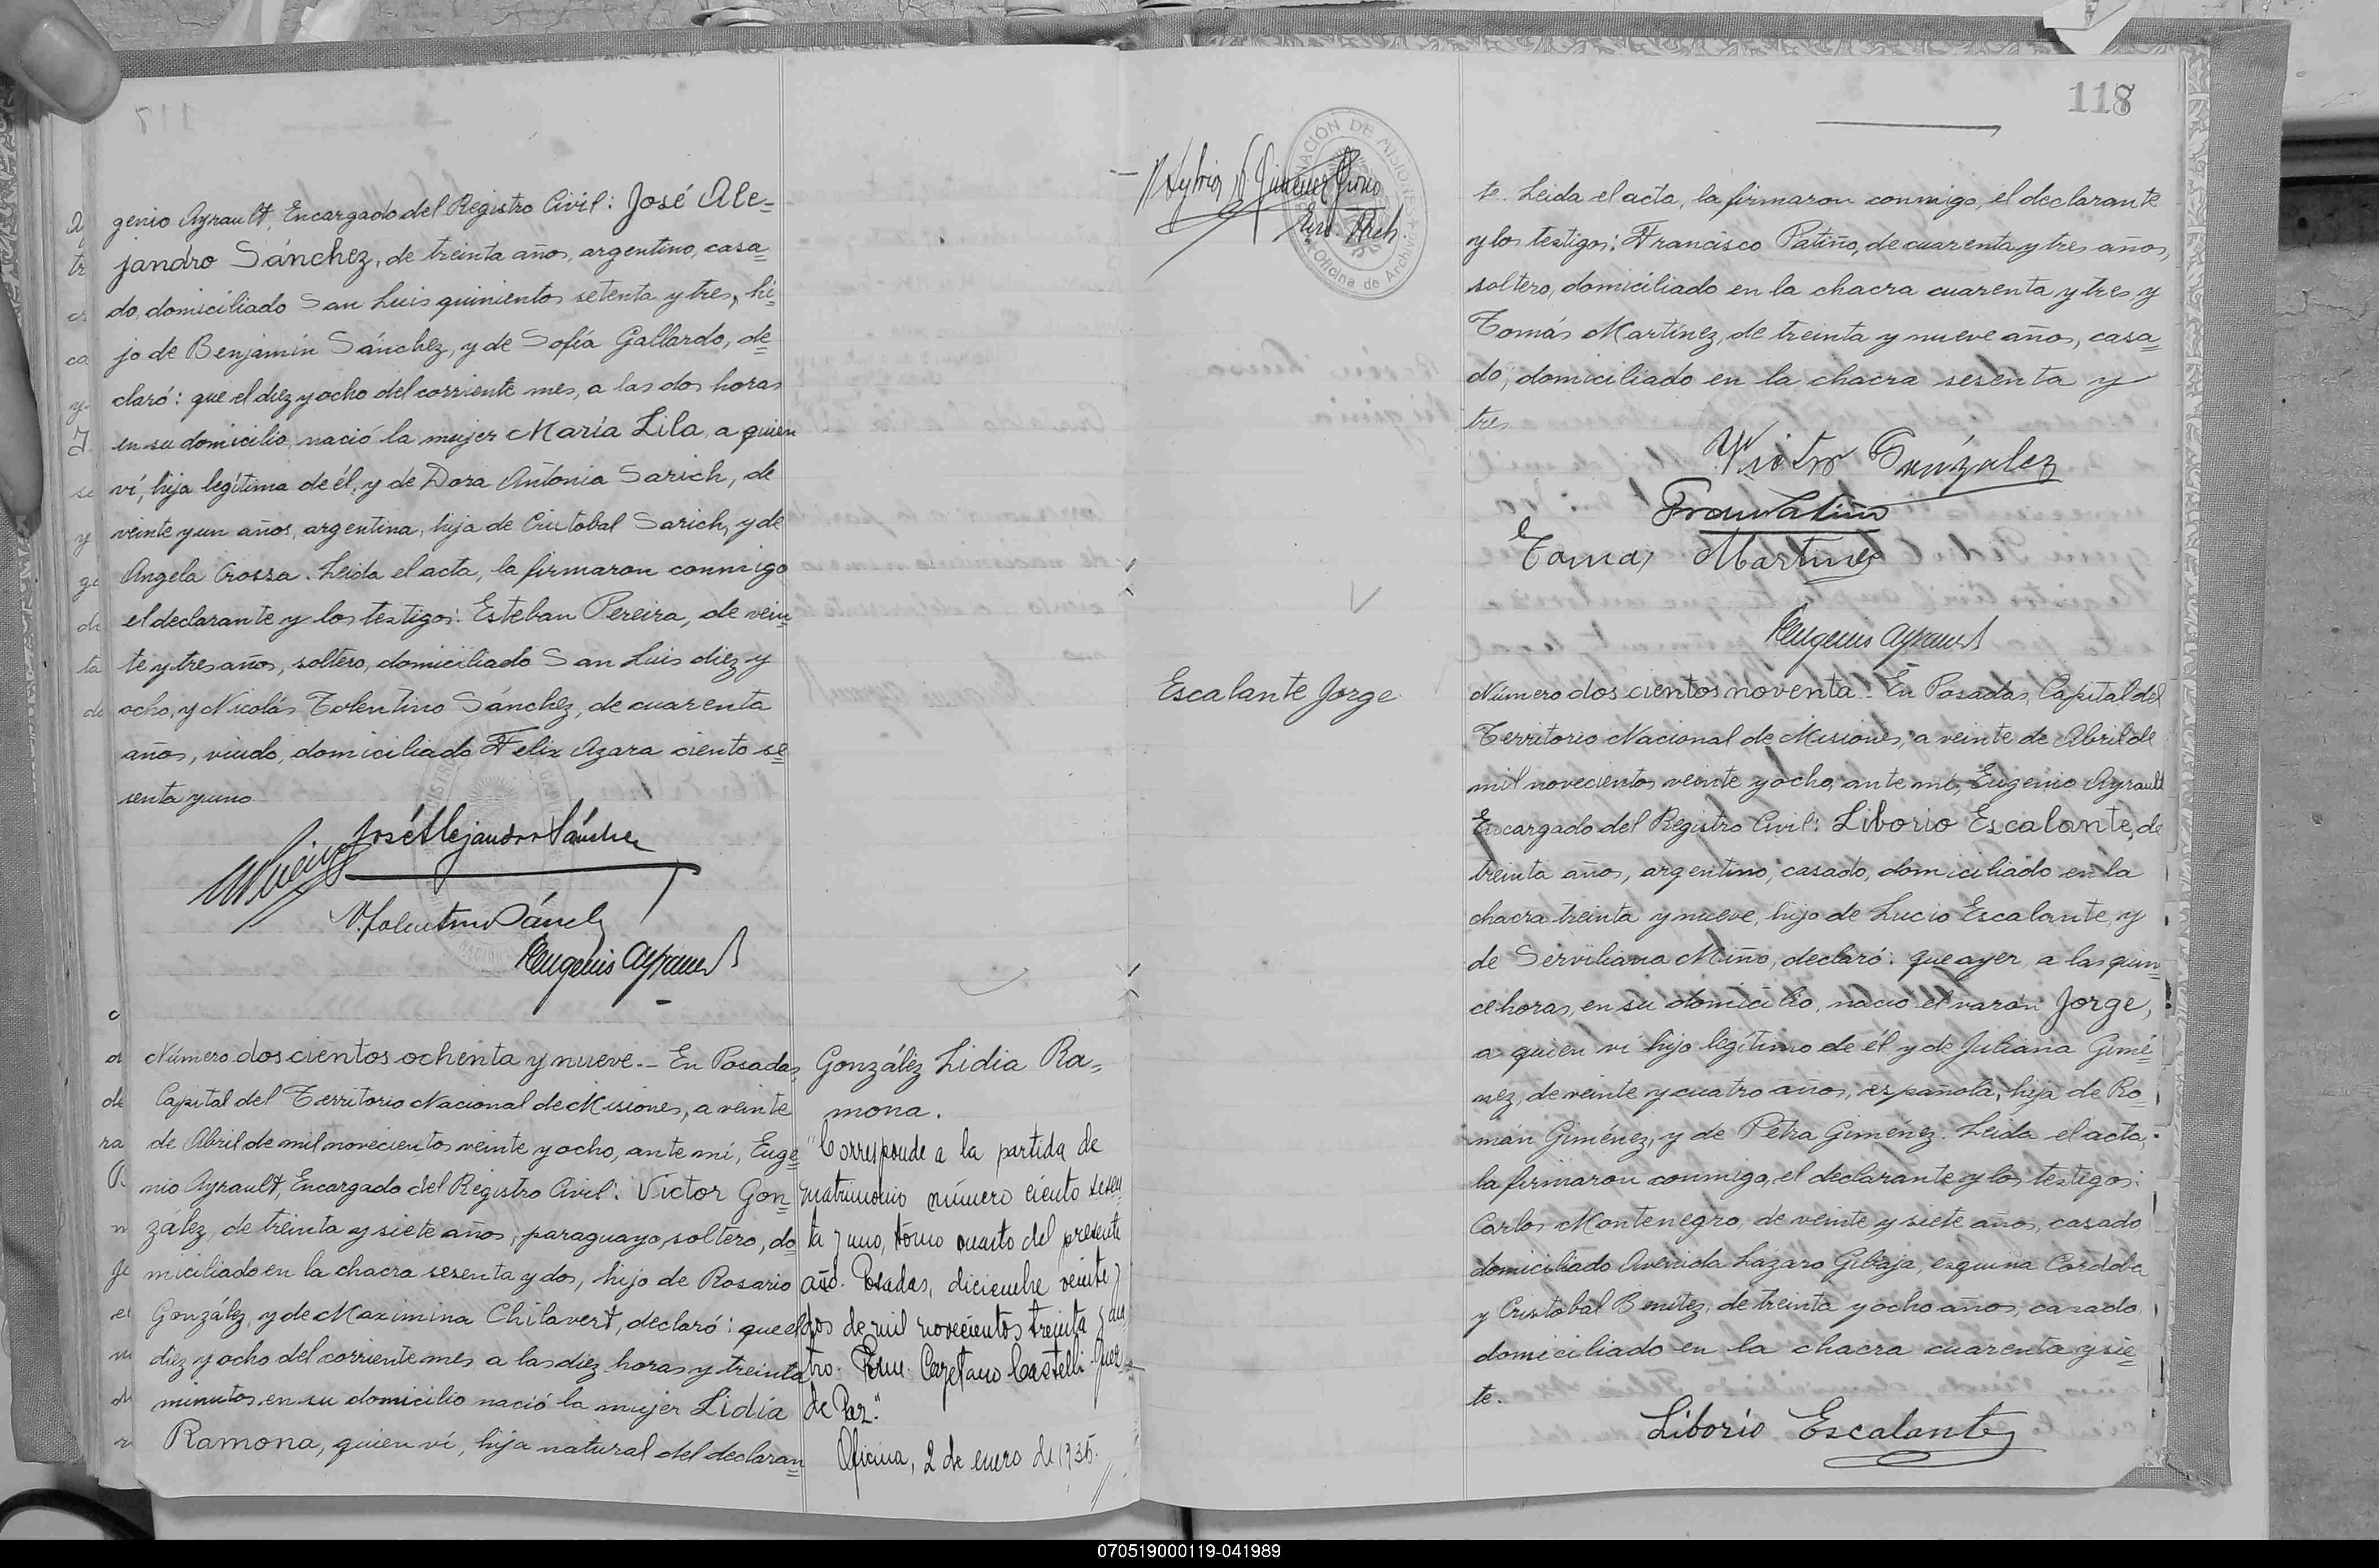 genio Ayrault, Encargado del Registro Civil: José Ale=
jandro Sánchez, de treinta años, argentino, casa=
do, domiciliado San Luis quinientos setenta y tres, hi=
jo de Benjamín Sánchez, y de Sofía Gallardo, de=
claró: que el diez y ocho del corriente mes, a las dos horas
en su domicilio, nació la mujer María Lila, a quien
ví, hija legítima de él, y de Dora Antonia Sarich, de
veinte y un años, argentina, hija de Cristobal Sarich, y de
Angela Crossa. Leida el acta, la firmaron conmigo
el declarante y los testigos: Esteban Pereira, de vein=
te y tres años, soltero, domiciliado San Luis diez y
ocho, y Nicolás Tolentino Sánchez, de cuarenta
años, viudo, domiciliado Felix Azara ciento se=
senta y uno.
José Alejandro Sánchez
N. Tolentino Sánch
Eugenio Ayrault
Número doscientos ochenta y nueve.- En Posadas,
Capital del Territorio Nacional de Misiones, a veinte
de Abril de mil novecientos veinte y ocho, ante mí, Euge=
nio Ayrault, Encargado del Registro Civil: Víctor Gon=
zález, de treinta y siete años, paraguayo, soltero, do=
miciliado en la chacra sesenta y dos, hijo de Rosario
González, y de Maximina Chilavert, declaró: que el
diez y ocho del corriente mes, a las diez horas y treinta
minutos en su domicilio nació la mujer Lidia
Ramona, quien ví, hija natural del declaran=
González Lidia Ra=
mona.
"Corresponde a la partida de
matrimonio número ciento sesen
ta y uno, tomo cuarto del presente
año. Posadas, diciembre veinte y
dos de mil novecientos treinta y cua
tro. Fdo. Cayetano Castelli Juez
de Paz."
Oficina, 2 de enero de 1935.
118
NACIÓN DE MISIONES
Oficina de Archivo
Enc. Arch.
te. Leida el acta, la firmaron conmigo, el declarante
y los testigos: Francisco Patiño, de cuarenta y tres años,
soltero, domiciliado en la chacra cuarenta y tres y
Tomás Martínez, de treinta y nueve años, casa=
do, domiciliado en la chacra sesenta y
tres
Victor González
Fran Patiño
Tomas Martinez
Eugenio Ayrault
Escalante Jorge
Número doscientos noventa.- En Posadas, Capital del
Territorio Nacional de Misiones, a veinte de Abril de
mil novecientos veinte y ocho, ante mí, Eugenio Ayrault
Encargado del Registro Civil: Liborio Escalante, de
treinta años, argentino, casado, domiciliado en la
chacra treinta y nueve, hijo de Lucio Escalante, y
de Serviliana Miño, declaró: que ayer, a las quin=
ce horas, en su domicilio, nació el varón Jorge,
a quien ví hijo legítimo de él y de Juliana Gimé=
nez, de veinte y cuatro años, española, hija de Ro=
mán Giménez, y de Petra Giménez. Leida el acta,
la firmaron conmigo, el declarante y los testigos:
Carlos Montenegro, de veinte y siete años, casado,
domiciliado Avenida Lázaro Gibaja, esquina Córdoba
y Cristobal Benítez, de treinta y ocho años, casado,
domiciliado en la chacra cuarenta y sie=
te.
Liborio Escalante
070519000119-041989